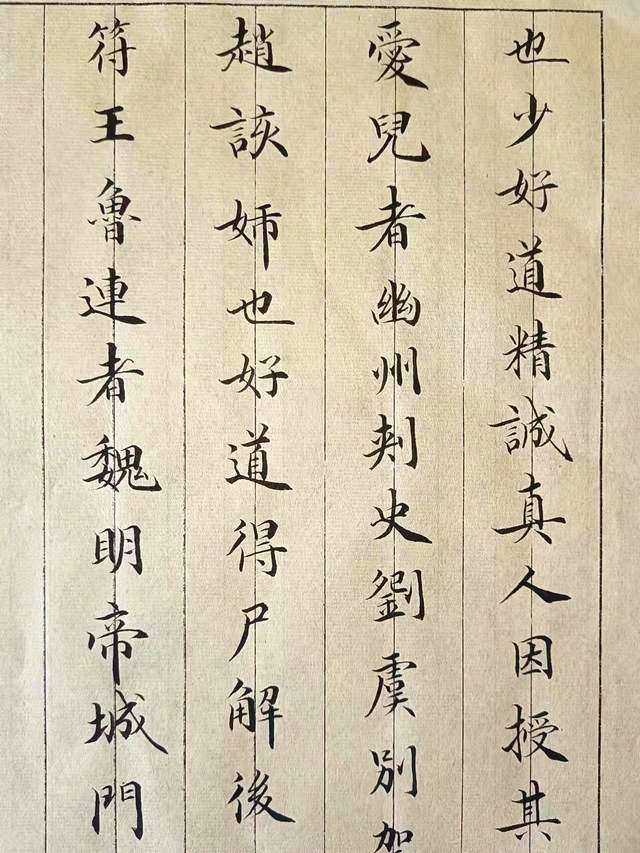 也少好道精誠真人因授其
愛兒者幽州刾史劉虞別駕
趙該姊也好道得尸解後
符王魯連者魏明帝城門